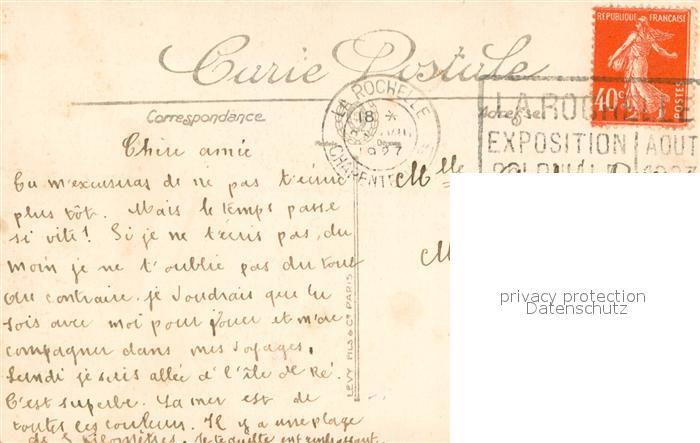 Carte Postale
RÉPUBLIQUE FRANÇAISE
40c
POSTES
LA ROCHELLE
18
1927
CHARENTE
LA ROCHELLE
EXPOSITION AOUT
COLONIALE 1927
Correspondance
Adresse
Chère amie
Tu m'excuseras de ne pas t'écrire
plus tôt. Mais le temps passe
si vite! Si je ne t'écris pas, du
moin je ne t'oublie pas du tout
Au contraire. je voudrais que tu
sois avec moi pour jouer et m'ac
compagner dans mes voyages.
Lundi je suis allée à l'île de Ré.
C'est superbe. La mer est de
toutes les couleurs. Il y a une plage
de 3 kilomètres. Je te quitte en t'embrassant
Mlle
M
LEVY FILS & Cie PARIS
privacy protection
Datenschutz